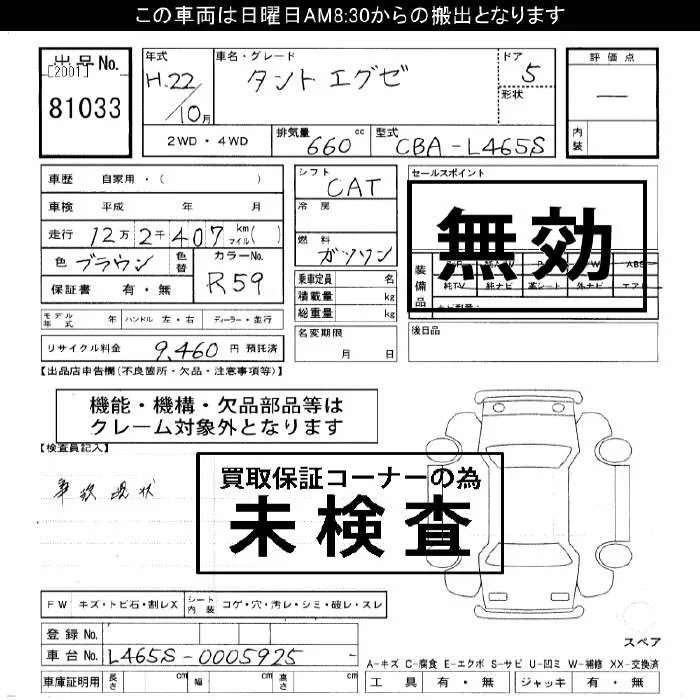 この車両は日曜日AM8:30からの搬出となります
出品No.
[2001]
81033
年式
H.22/10月
車名・グレード
タント エグゼ
ドア
5
形状
評価点
—
内装
2WD・4WD
排気量 660 cc
型式 CBA-L465S
車歴 自家用・( )
車検 平成 年 月
走行 12万2千407 km マイル( )
色 ブラウン 色替
カラーNo. R59
保証書 有・無
シフト CAT
冷房
燃料 ガソリン
乗車定員 名
積載量 kg
総重量 kg
セールスポイント
無効
装備品
ABS
純TV 純ナビ 革シート 外ナビ エアB
モデル年式 年 ハンドル 左・右 ディーラー・並行
名変期限
月 日
後日品
リサイクル料金 9,460 円 預託済
【出品店申告欄(不良箇所・欠品・注意事項等)】
機能・機構・欠品部品等は
クレーム対象外となります
【検査員記入】
事故現状
買取保証コーナーの為
未検査
FW キズ・トビ石・割レX
シート内装 コゲ・穴・汚レ・シミ・破レ・スレ
登録No.
車台No. L465S-0005925
スペア
A-キズ C-腐食 E-エクボ S-サビ U-凹ミ W-補修 XX-交換済
車庫証明用 長さ cm 幅 cm 高さ cm
工具 有・無 ジャッキ 有・無